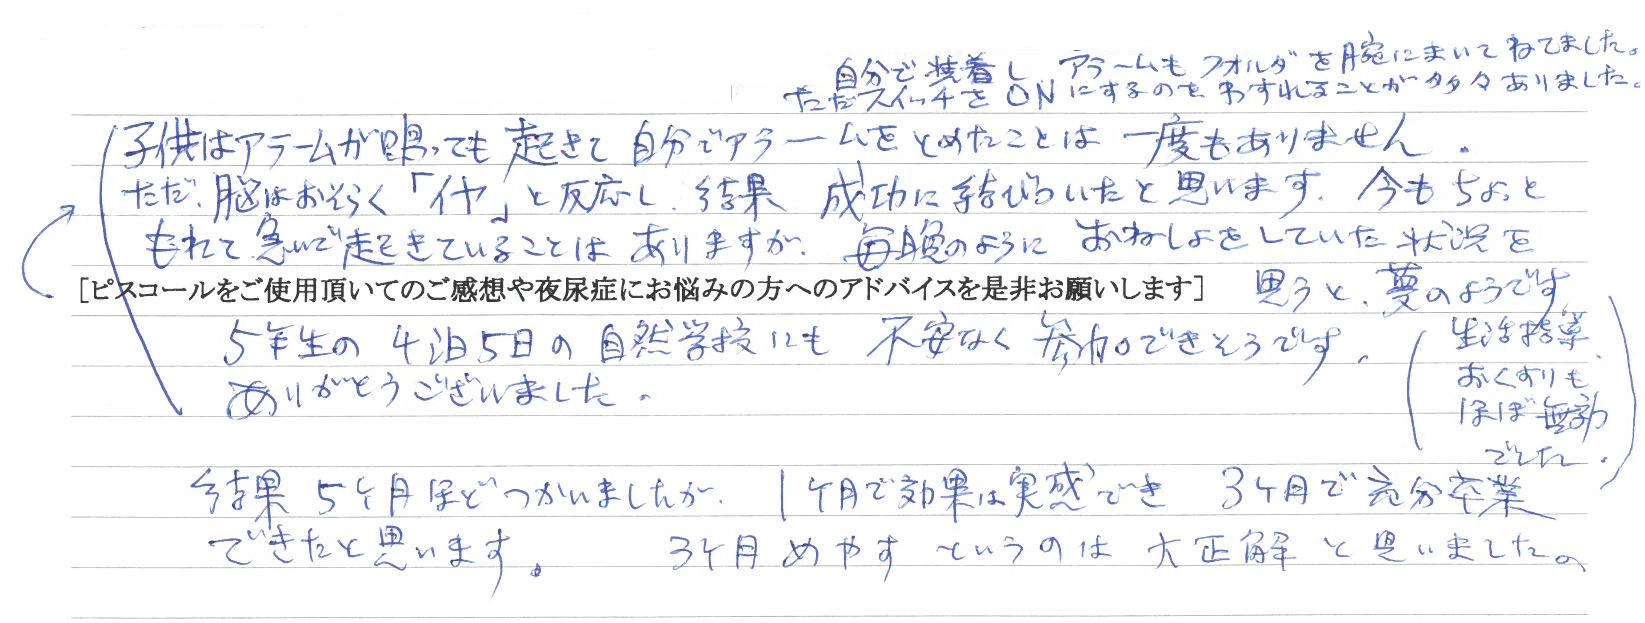 自分で装着し アラームもフォルダを腕にまいてねてました。
ただスイッチをONにするのをわすれることが多々ありました。
子供はアラームが鳴っても起きて自分でアラームをとめたことは一度もありません。
ただ、脳はおそらく「イヤ」と反応し、結果 成功に結びついたと思います。今もちょっと
もれて急いで起きていることはありますが、毎晩のようにおねしょをしていた状況を
[ピスコールをご使用頂いてのご感想や夜尿症にお悩みの方へのアドバイスを是非お願いします] 思うと、夢のようです
5年生の4泊5日の自然学校にも不安なく参加できそうです。
ありがとうございました。
(生活指導、
おくすりも
ほぼ無効
でした。)
結果 5ヶ月ほどつかいましたが、1ヶ月で効果は実感でき 3ヶ月で充分卒業
できたと思います。 3ヶ月めやすというのは大正解と思いました。